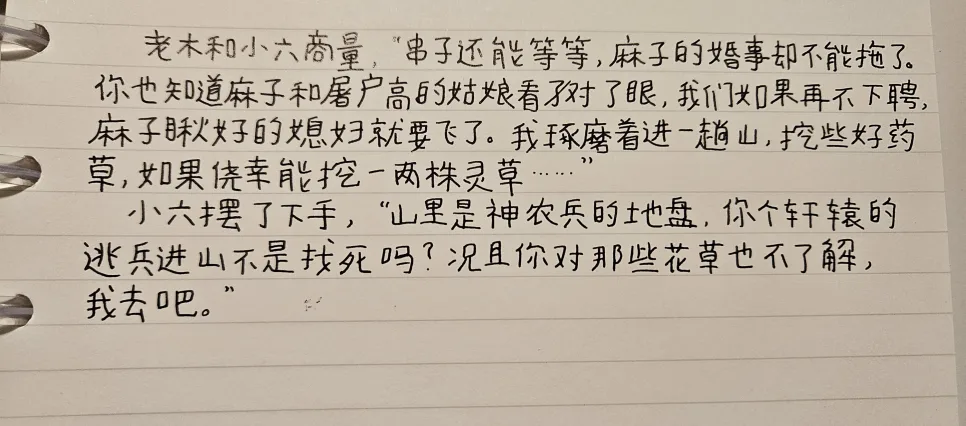 老木和小六商量，“串子还能等等，麻子的婚事却不能拖了。
你也知道麻子和屠户高的姑娘看对了眼，我们如果再不下聘，
麻子瞅好的媳妇就要飞了。我琢磨着进一趟山，挖些好药
草，如果侥幸能挖一两株灵草……”
小六摆了下手，“山里是神农兵的地盘，你个轩辕的
逃兵进山不是找死吗？况且你对那些花草也不了解，
我去吧。”